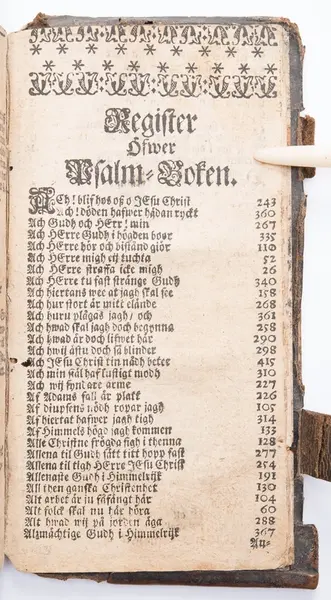 Register
Öfwer
Psalm-Boken.
ACh! blif hos oß o JEsu Christ 243
Ach! döden hafwer hädan ryckt 360
Ach Gudh och HErr! min 267
Ach HErre Gudh i högden boor 335
Ach HErre hör och bistånd giör 110
Ach HErre migh ey tuchta 52
Ach HErre straffa icke migh 26
Ach HErre tu fast stränge Gudh 340
Ach hiertans wee at jagh skal see 158
Ach hur stort är mitt elände 268
Ach huru plågas jagh/ och 361
Ach hwad skal jagh doch begynna 258
Ach hwad är doch lifwet här 290
Ach hwij ästu doch så blinder 298
Ach JEsu Christ tin nådh beter 415
Ach min siäl haf lustigt modh 310
Ach wij syndare arme 227
Af Adams fall är platt 226
Af diupsens nödh ropar jagh 105
Af hiertat hafwer jagh tigh 314
Af Himmels högd jagh kommen 133
Alle Christne frögda sigh i thenna 128
Allena til Gudh sätt titt hopp fast 277
Allena til tigh HErre JEsu Christ 254
Allenaste Gudh i Himmelrijk 191
All then ganska Christenhet 130
Alt arbet är in fåfängt här 104
Alt folck skal nu tak höra 60
Alt hwad wij på jorden äga 288
Alzmächtige Gudh i Himmelrijk 367